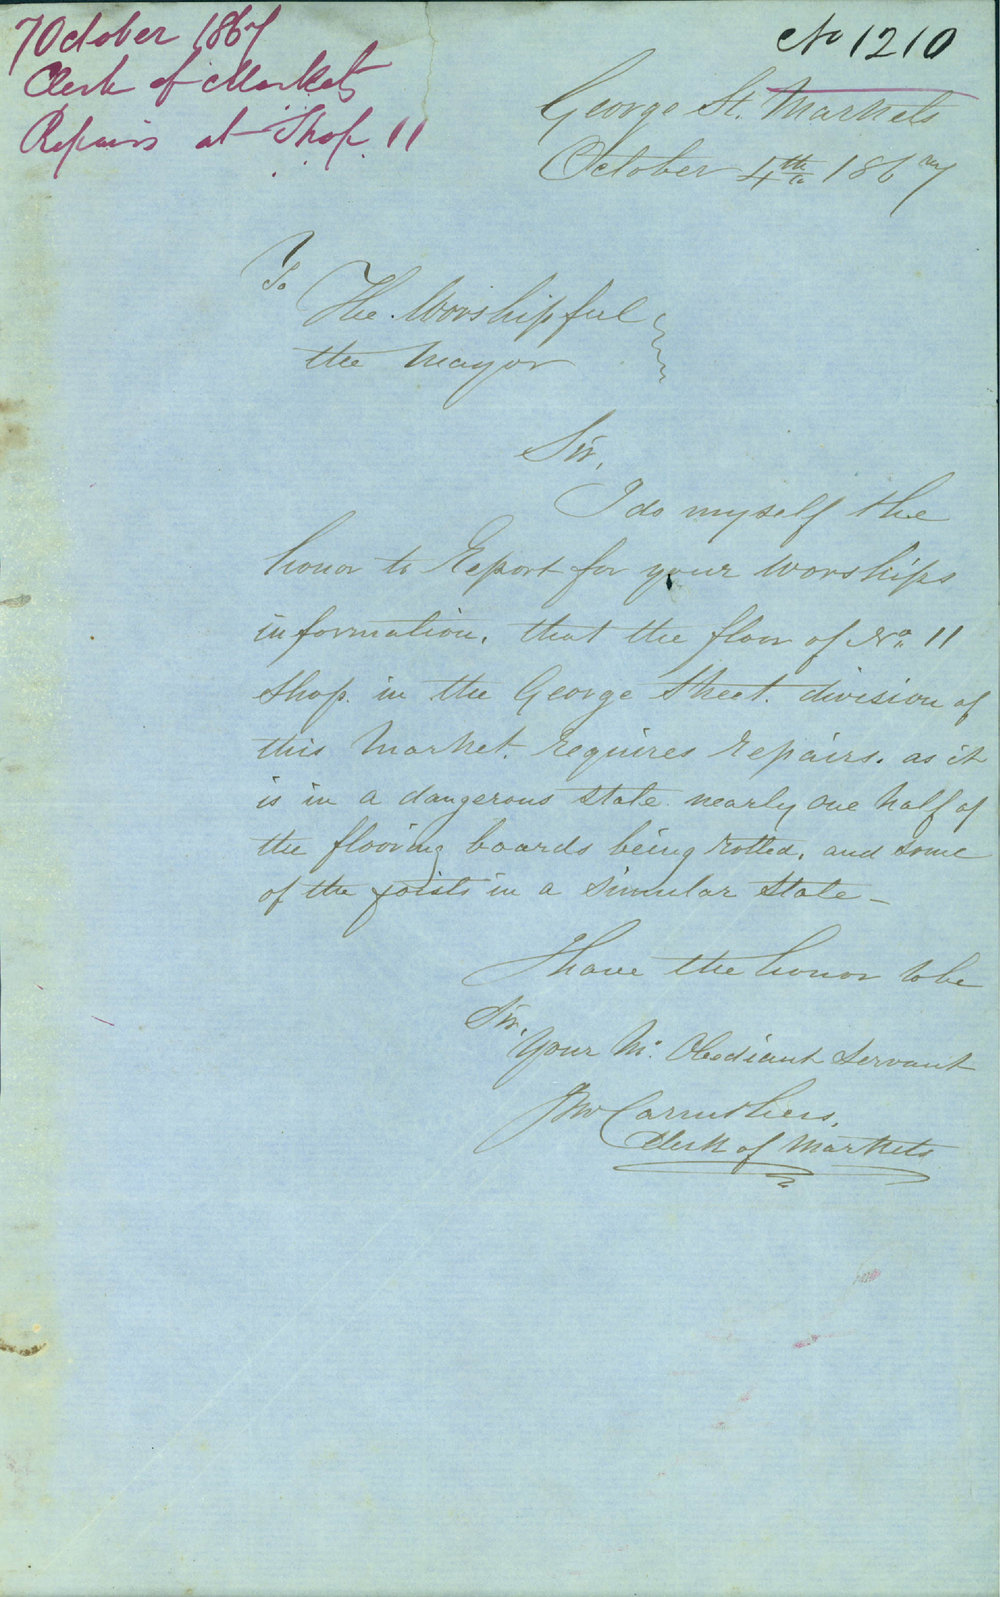 7 October 1867
Clerk of Markets
Repairs at Shop 11
No 1210
George St. Markets
October 4th 1867
To
The Worshipful
the Mayor
Sir,
I do myself the
honor to Report for your worships
information, that the floor of No. 11
Shop in the George Street division of
this Market. requires repairs. as it
is in a dangerous state nearly one half of
the flooring boards being rotted, and some
of the joists in a simular state -
I have the honor to be
Sir,
Your Mo. Obediant Servant
Jno Carruthers,
Clerk of Markets